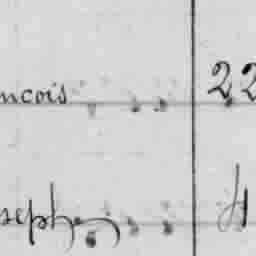 ncois 22
seph 4